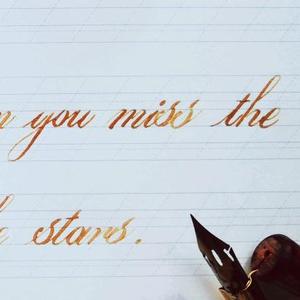 you miss the
stars.